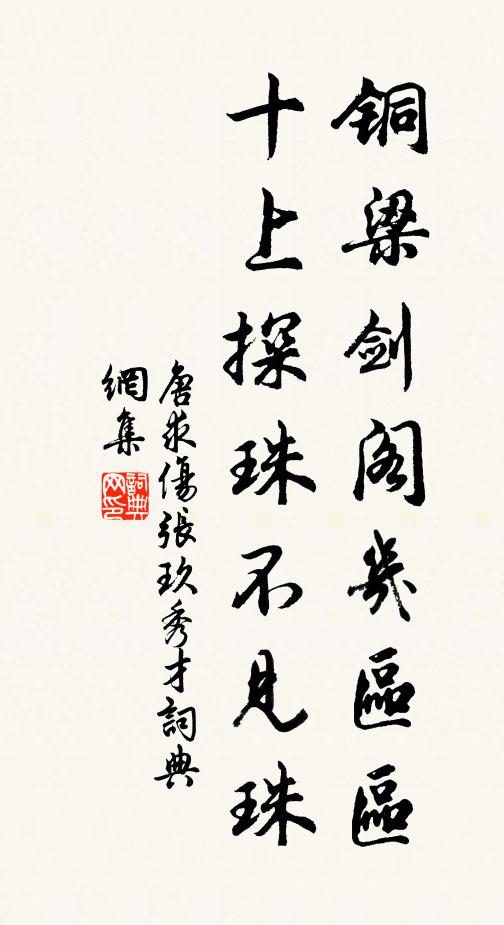 铜梁剑阁几區區
十上探珠不见珠
唐求傷張玖秀才詞典
網集
詞典网印